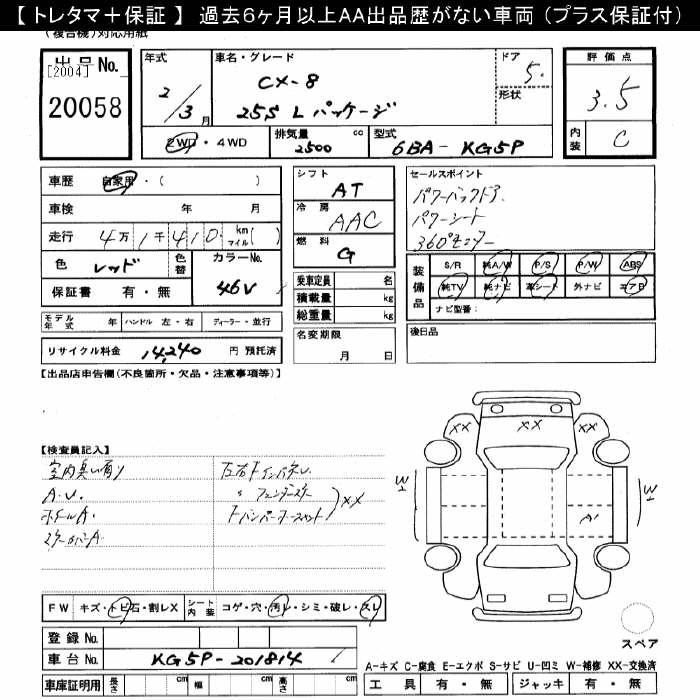 【トレタマ＋保証】 過去6ヶ月以上AA出品歴がない車両（プラス保証付）
(複合機)対応用紙
出品No.
[2004]
20058
年式
2/3月
車名・グレード
CX-8
25S Lパッケージ
ドア
5.
形状
評価点
3.5
内装 C
2WD・4WD
排気量 cc
2500
型式
6BA-KG5P
車歴 自家用・( )
車検 年 月
走行 4万1千410 km マイル( )
色 レッド 色替 カラーNo. 46V
保証書 有・無
モデル年式 年 ハンドル 左・右 ディーラー・並行
リサイクル料金 14,240 円 預託済
シフト
AT
冷房
AAC
燃料
G
乗車定員 名
積載量 kg
総重量 kg
名変期限
月 日
セールスポイント
パワーバックドア.
パワーシート
360°モニター
装備品
S/R 純A/W P/S P/W ABS
純TV 純ナビ 革シート 外ナビ エアB
ナビ型番：
後日品
【出品店申告欄(不良箇所・欠品・注意事項等)】
【検査員記入】
室内臭い有り
A.U.
ホイールA.
XX
FW キズ・トビ石・割レX シート内装 コゲ・穴・汚レ・シミ・破レ・スレ
登録No.
車台No. KG5P-201814
車庫証明用 長さ cm 幅 cm 高さ cm
XX XX XX
W W
A'
スペア
A-キズ C-腐食 E-エクボ S-サビ U-凹ミ W-補修 XX-交換済
工具 有・無 ジャッキ 有・無